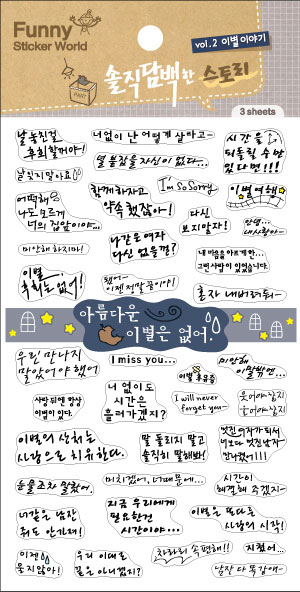 Funny
Sticker World
vol.2 이별이야기
솔직담백한 스토리
3 sheets
날 놓친걸
후회할꺼야!
너없이 난 어떻게 살라고~
시간을
되돌릴 수만
있다면!!!
날 잊지 말아요
열 볼 참을 자신이 없다...
I'm so Sorry
이별여행
어떡해
나도 모르게
너의 집앞이야...
함께하자고
약속했잖아!
다신
보지말자!
안녕...
내사랑아~
미안해 하지마!
나같은 여자
다신 없을껄?
내 마음을 아프게 한...
그런 사람이 있었습니다.
이별,
후회는 없어!
됐어~
이젠 정말 끝이야!
혼자 내버려둬~
아름다운
이별은 없어.
우린 만나지
말았어야 했어
I miss you...
미안해
이말밖엔...
너 없이도
시간은
흘러가겠지?
이별 후유증
사랑 뒤엔 항상
이별이 있다.
I will never
forget you~
웃어야 할지
울어야 할지
이별의 상처는
사랑으로 치유한다.
말 돌리지 말고
솔직히 말해봐!
멋진 여자가 되서
너보다 멋진 남자
만나겠어!!!
눈물조차 말랐어.
미치겠어, 너때문에...
시간이
해결해 주겠지~
너같은 남잔
줘도 안가져!
지금 우리에게
필요한건
시간이야...
이별은 또다른
사랑의 시작!
이젠
울지않아!
우리 이대로
끝은 아니겠지?
차라리 속편해!!
지쳤어...
남잔 다 똑같애~